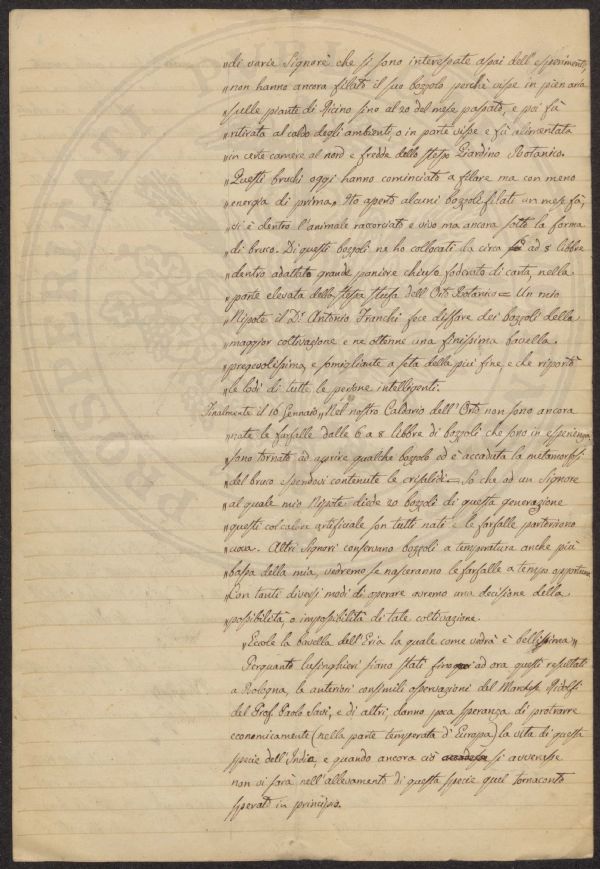 „di varie Signore che si sono interessate assai dell'esperimento,
„non hanno ancora filato il suo bozzolo perchè visse in pien aria
„sulle piante di Ricino fino al 20 del mese passato, e poi fù
„ritirata al caldo degli ambienti, o in parte visse e fù alimentata
„in certe camere al nord e fredde dello stesso Giardino Botanico.
„Questi bruchi oggi hanno cominciato a filare ma con meno
„energia di prima. Ho aperto alcuni bozzoli filati un mese fà,
„vi è dentro l'animale raccorciato e vivo ma ancora sotto la forma
„di bruco. Di questi bozzoli ne ho collocati da circa ad 8 libbre
„dentro adattato grande paniere chiuso foderato di carta, nella
„parte elevata della stessa stufa dell'Orto Botanico = Un mio
„Nipote il Dr. Antonio Franchi fece disfare dei bozzoli della
„maggior coltivazione e ne ottenne una finissima bavella.
„pregevolissima, e somigliante a seta della più fine, e che riportò
„le lodi di tutte le persone intelligenti.
Finalmente il 16 Gennaio „Nel nostro Caldario dell'Orto non sono ancora
„nate le farfalle dalle 6 a 8 libbre di bozzoli che sono in esperienza,
„sono tornato ad aprire qualche bozzolo ed è accaduta la metamorfosi
„del bruco essendovi contenute le crisalidi. = So che ad un Signore
„al quale mio Nipote diede 20 bozzoli di questa generazione
„questi col calore artificiale son tutti nati e le farfalle partorirono
„uova. Altri Signori conservano bozzoli a temperatura anche più
„bassa della mia, vedremo se nasceranno le farfalle a tempo opportuno.
„Con tanti diversi modi di operare avremo una decisione della
„possibilità, o impossibilità di tale coltivazione.
„Eccole la bavella dell'Eria la quale come vedrà è bellissima„
Perquanto lusinghieri siano stati fino ad ora questi resultati
a Bologna, le anteriori consimili osservazioni del Marchese Ridolfi
del Prof. Paolo Savi, e di altri, danno poca speranza di protrarre
economicamente (nella parte temperata di Europa) la vita di questa
specie dell'India, e quando ancora ciò si avverasse
non vi sarà nell'allevamento di questa specie quel tornaconto
sperato in principio.